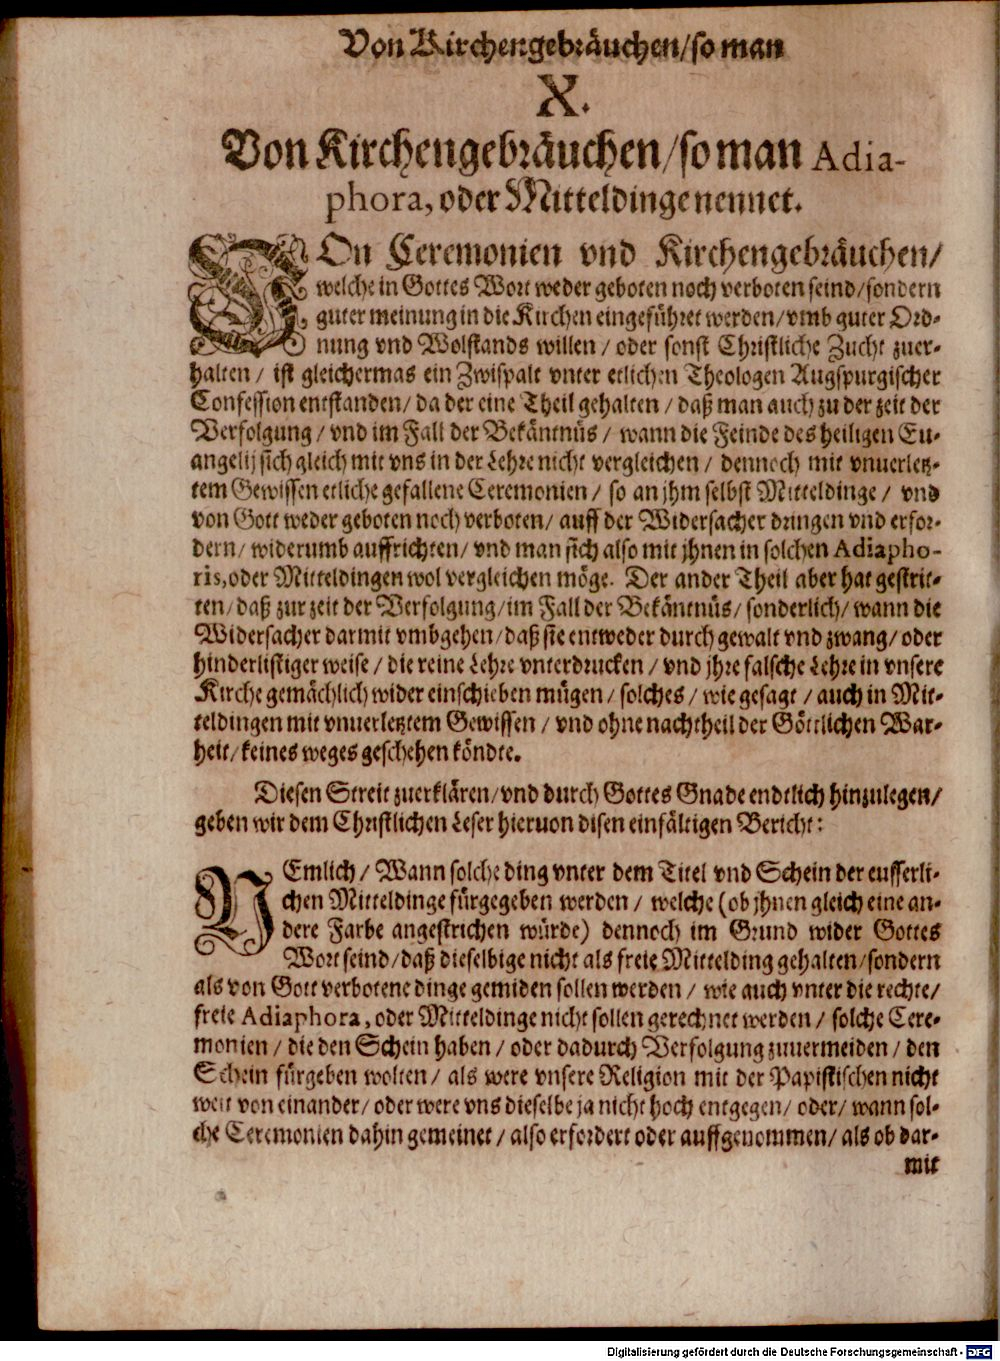 Von Kirchengebräuchen/so man
X.
Von Kirchengebräuchen/so man Adia-
phora, oder Mitteldinge nennet.
VOn Ceremonien vnd Kirchengebräuchen/
welche in Gottes Wort weder geboten noch verboten seind/sondern
guter meinung in die Kirchen eingeführet werden/vmb guter Ord-
nung vnd Wolstands willen/ oder sonst Christliche Zucht zuer-
halten/ ist gleichermas ein Zwispalt vnter etlichen Theologen Augspurgischer
Confession entstanden/ da der eine Theil gehalten/ daß man auch zu der zeit der
Verfolgung/ vnd im Fall der Bekäntnüs/ wann die Feinde des heiligen Eu-
angelij sich gleich mit vns in der Lehre nicht vergleichen/ dennoch mit vnuerletz-
tem Gewissen etliche gefallene Ceremonien/ so an jhm selbst Mitteldinge/ vnd
von Gott weder geboten noch verboten/ auff der Widersacher dringen vnd erfor-
dern/ widerumb auffrichten/ vnd man sich also mit jhnen in solchen Adiapho-
ris, oder Mitteldingen wol vergleichen möge. Der ander Theil aber hat gestrit-
ten/ daß zur zeit der Verfolgung/im Fall der Bekäntnüs/ sonderlich/ wann die
Widersacher darmit vmbgehen/ daß sie entweder durch gewalt vnd zwang/ oder
hinderlistiger weise/ die reine Lehre vnterdrucken/ vnd jhre falsche Lehre in vnsere
Kirche gemächlich wider einschieben mügen/ solches/ wie gesagt/ auch in Mit-
teldingen mit vnuerletztem Gewissen/ vnd ohne nachtheil der Göttlichen War-
heit/ keines weges geschehen köndte.
Diesen Streit zuerklären/vnd durch Gottes Gnade endtlich hinzulegen/
geben wir dem Christlichen Leser hieruon disen einfältigen Bericht:
NEmlich/ Wann solche ding vnter dem Titel vnd Schein der eusserli-
chen Mitteldinge fürgegeben werden/ welche (ob jhnen gleich eine an-
dere Farbe angestrichen würde) dennoch im Grund wider Gottes
Wort seind/daß dieselbige nicht als freie Mittelding gehalten/sondern
als von Gott verbotene dinge gemiden sollen werden/ wie auch vnter die rechte/
freie Adiaphora, oder Mitteldinge nicht sollen gerechnet werden/ solche Cere-
monien/ die den Schein haben/ oder dadurch Verfolgung zuuermeiden/ den
Schein fürgeben wolten/ als were vnsere Religion mit der Papistischen nicht
weit von einander/ oder were vns dieselbe ja nicht hoch entgegen/ oder/ wann sol-
che Ceremonien dahin gemeinet/ also erfordert oder auffgenommen/ als ob dar-
mit
Digitalisierung gefördert durch die Deutsche Forschungsgemeinschaft - DFG